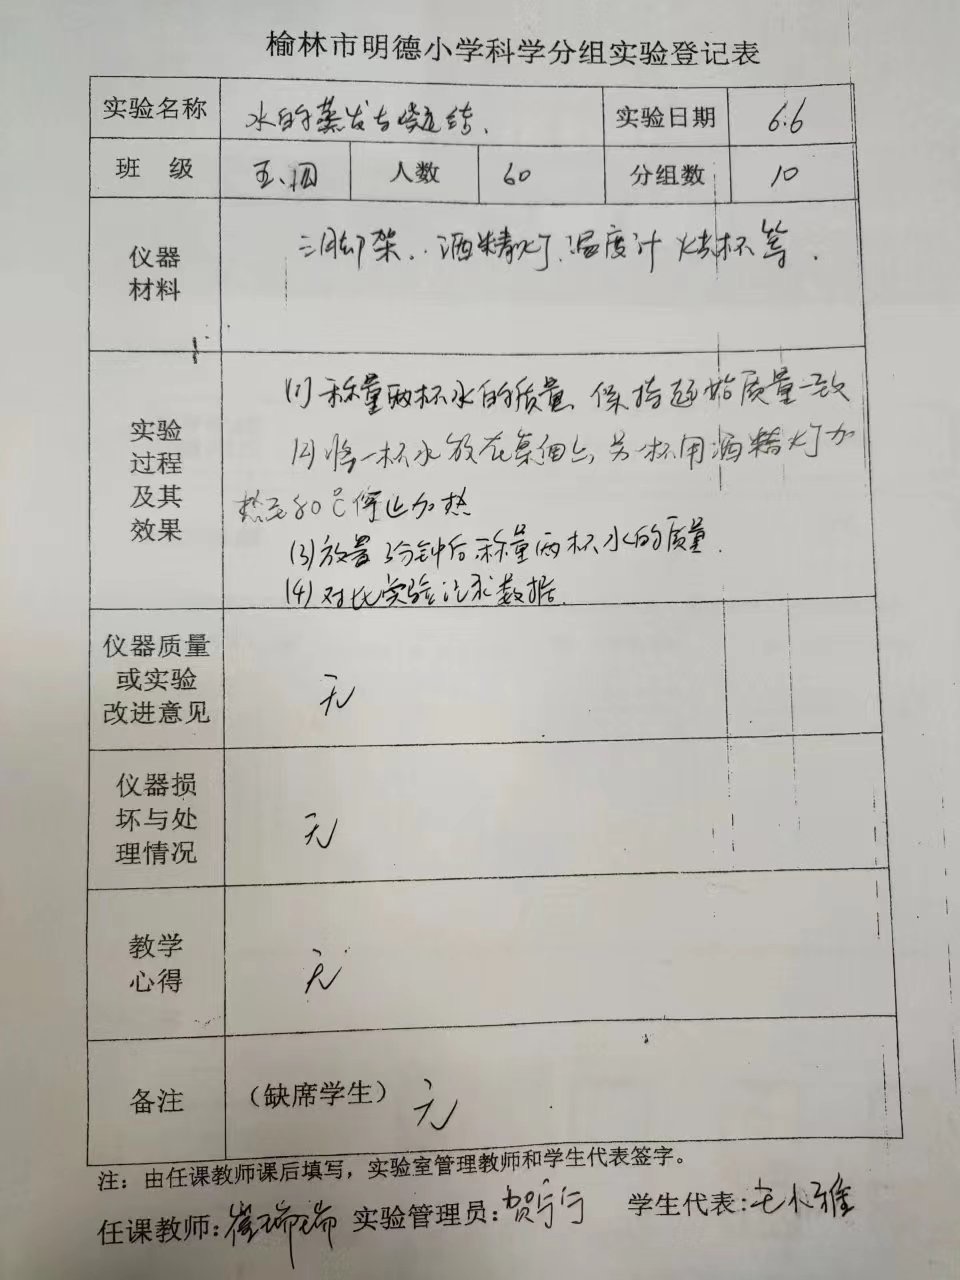 榆林市明德小学科学分组实验登记表
实验名称 水的蒸发与凝结. 实验日期 6.6
班 级 五、四 人数 60 分组数 10
仪器
材料
三脚架、酒精灯、温度计 烧杯等.
实验
过程
及其
效果
(1) 称量两杯水的质量、保持起始质量一致
(2) 将一杯水放在桌面上,另一杯用酒精灯加
热至80℃停止加热
(3) 放置 分钟后称量两杯水的质量.
(4) 对比实验记录数据.
仪器质量
或实验
改进意见
无
仪器损
坏与处
理情况
无
教学
心得
无
备注 (缺席学生) 无
注:由任课教师课后填写,实验室管理教师和学生代表签字。
任课教师:崔瑞瑞 实验管理员:贺 学生代表: